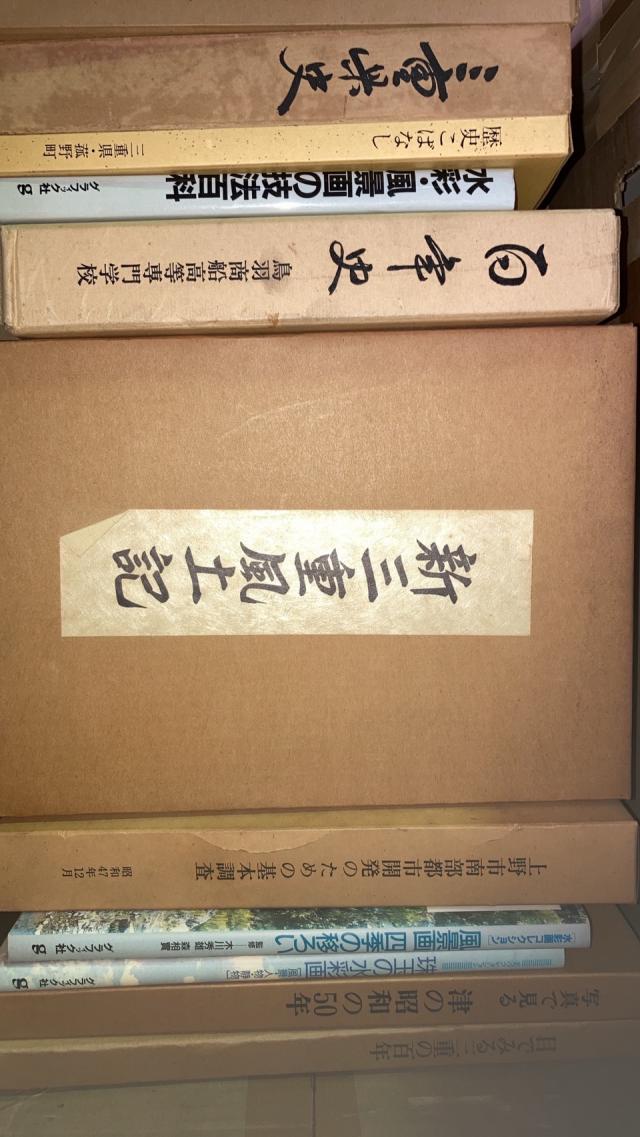 三重県史
歴史こばなし
三重県・菰野町
水彩・風景画の技法百科
グラフィック社
g
百年史
鳥羽商船高等専門学校
新三重風土記
上野市南部都市開発のための基本調査
昭和47年12月
水彩画コレクション
風景画 四季の移ろい
監修 木川秀雄 森相實
グラフィック社
g
珠玉の水彩画
風景・人物・静物
グラフィック社
g
写真で見る 津の昭和の50年
目でみる三重の百年